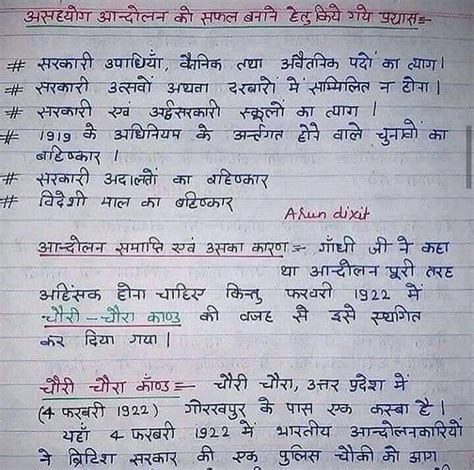 असहयोग आन्दोलन को सफल बनाने हेतु किये गये प्रयास:-
# सरकारी उपाधियाँ, वैतनिक तथा अवैतनिक पदों का त्याग।
# सरकारी उत्सवों अथवा दरबारों में सम्मिलित न होना।
# सरकारी एवं अर्द्धसरकारी स्कूलों का त्याग।
# 1919 के अधिनियम के अर्न्तगत होने वाले चुनावों का
बहिष्कार।
# सरकारी अदालतों का बहिष्कार
# विदेशी माल का बहिष्कार
Arun dixit
आन्दोलन समाप्ति एवं उसका कारण:- गाँधी जी ने कहा
था आन्दोलन पूरी तरह
अहिंसक होना चाहिए किन्तु फरवरी 1922 में
चौरी-चौरा काण्ड की वजह से इसे स्थगित
कर दिया गया।
चौरी चौरा काँण्ड:- चौरी चौरा, उत्तर प्रदेश में
(4 फरबरी 1922) गोरखपुर के पास एक कस्बा है।
यहाँ 4 फरबरी 1922 में भारतीय आन्दोलनकारियों
ने ब्रिटिश सरकार की एक पुलिस चौकी को आग